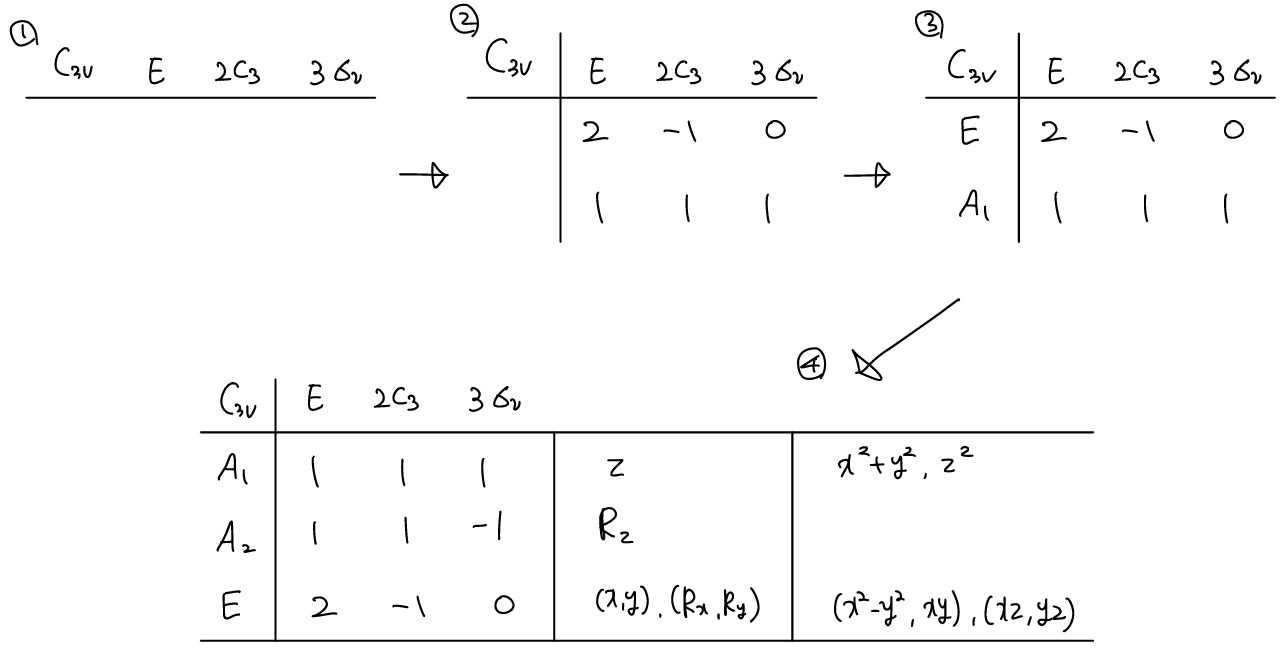 ①
C₃ᵥ E 2C₃ 3σᵥ
②
C₃ᵥ E 2C₃ 3σᵥ
2 -1 0
1 1 1
③
C₃ᵥ E 2C₃ 3σᵥ
E 2 -1 0
A₁ 1 1 1
④
C₃ᵥ E 2C₃ 3σᵥ
A₁ 1 1 1 z x²+y², z²
A₂ 1 1 -1 R_z
E 2 -1 0 (x,y), (Rₓ, R_y) (x²-y², xy), (xz, yz)